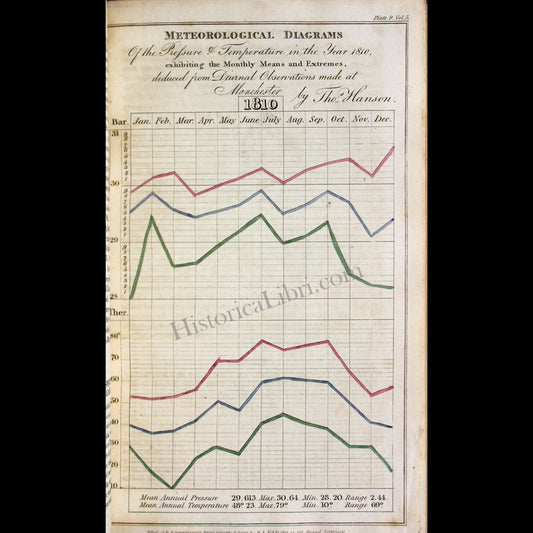 Plate 9. Vol. 5.
METEOROLOGICAL DIAGRAMS
Of the Pressure & Temperature in the Year 1810,
exhibiting the Monthly Means and Extremes,
deduced from Diurnal Observations made at
Manchester by Thos. Hanson.
1810
Bar. Jan. Feb. Mar. Apr. May June July Aug. Sep. Oct. Nov. Dec.
31
30
29
28
HistoricaLibri.com
Ther.
80°
70
60
50
40
30
20
10
Mean Annual Pressure 29.613 Max. 30.64 Min. 28.20 Range 2.44
Mean Annual Temperature 48° 23 Max. 79° Min. 10° Range 69°